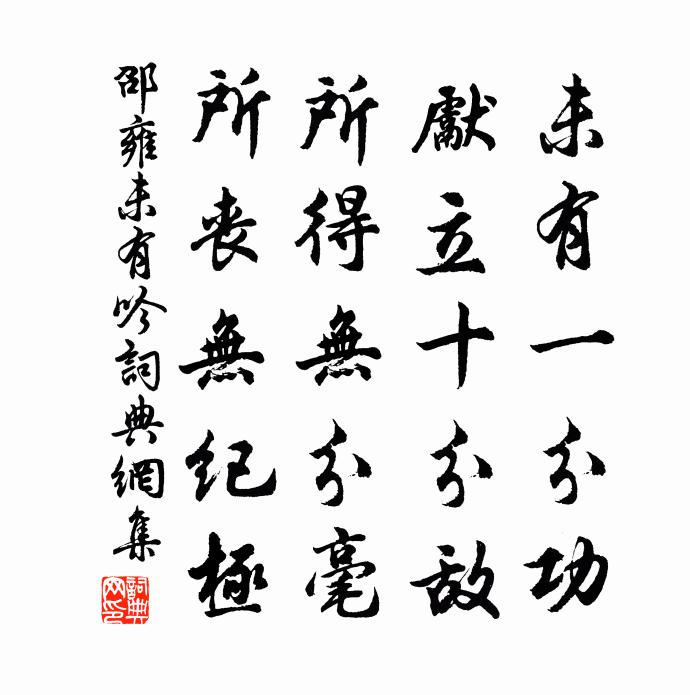 未有一分功
獻立十分敵
所得無分毫
所喪無紀極
邵雍未有吟詞典網集
詞典网印